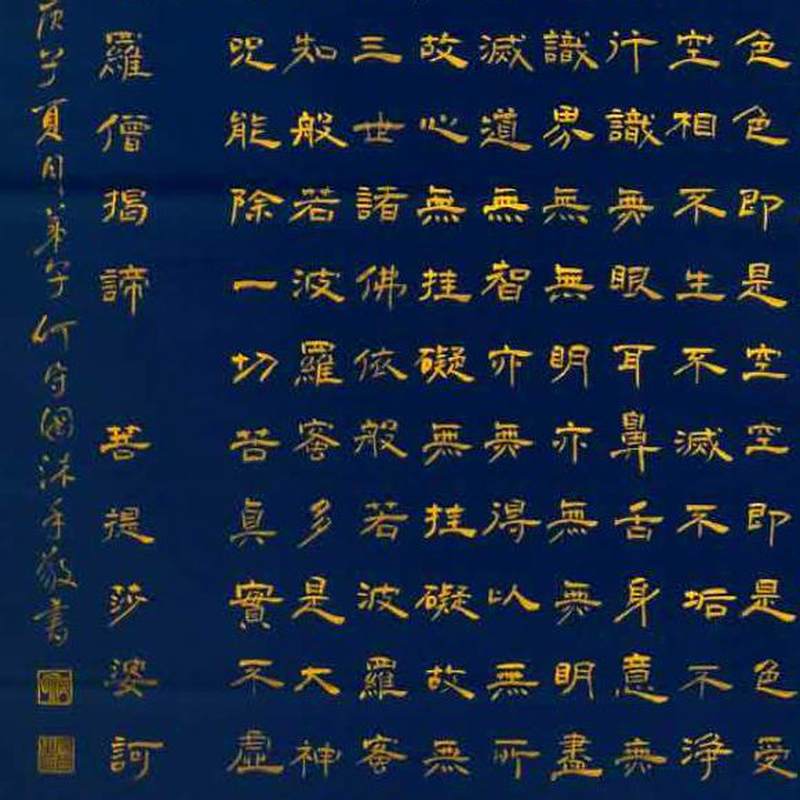 色色即是空空即是色受
空相不生不滅不垢不淨
行識無眼耳鼻舌身意無
識界無無明亦無無明盡
滅道無智亦無得以無所
故心無挂礙無挂礙故無
三世諸佛依般若波羅蜜
知般若波羅蜜多是大神
咒能除一切苦真實不虛
羅僧揭諦 菩提莎婆訶
庚子夏月弟子何守國沐手敬書